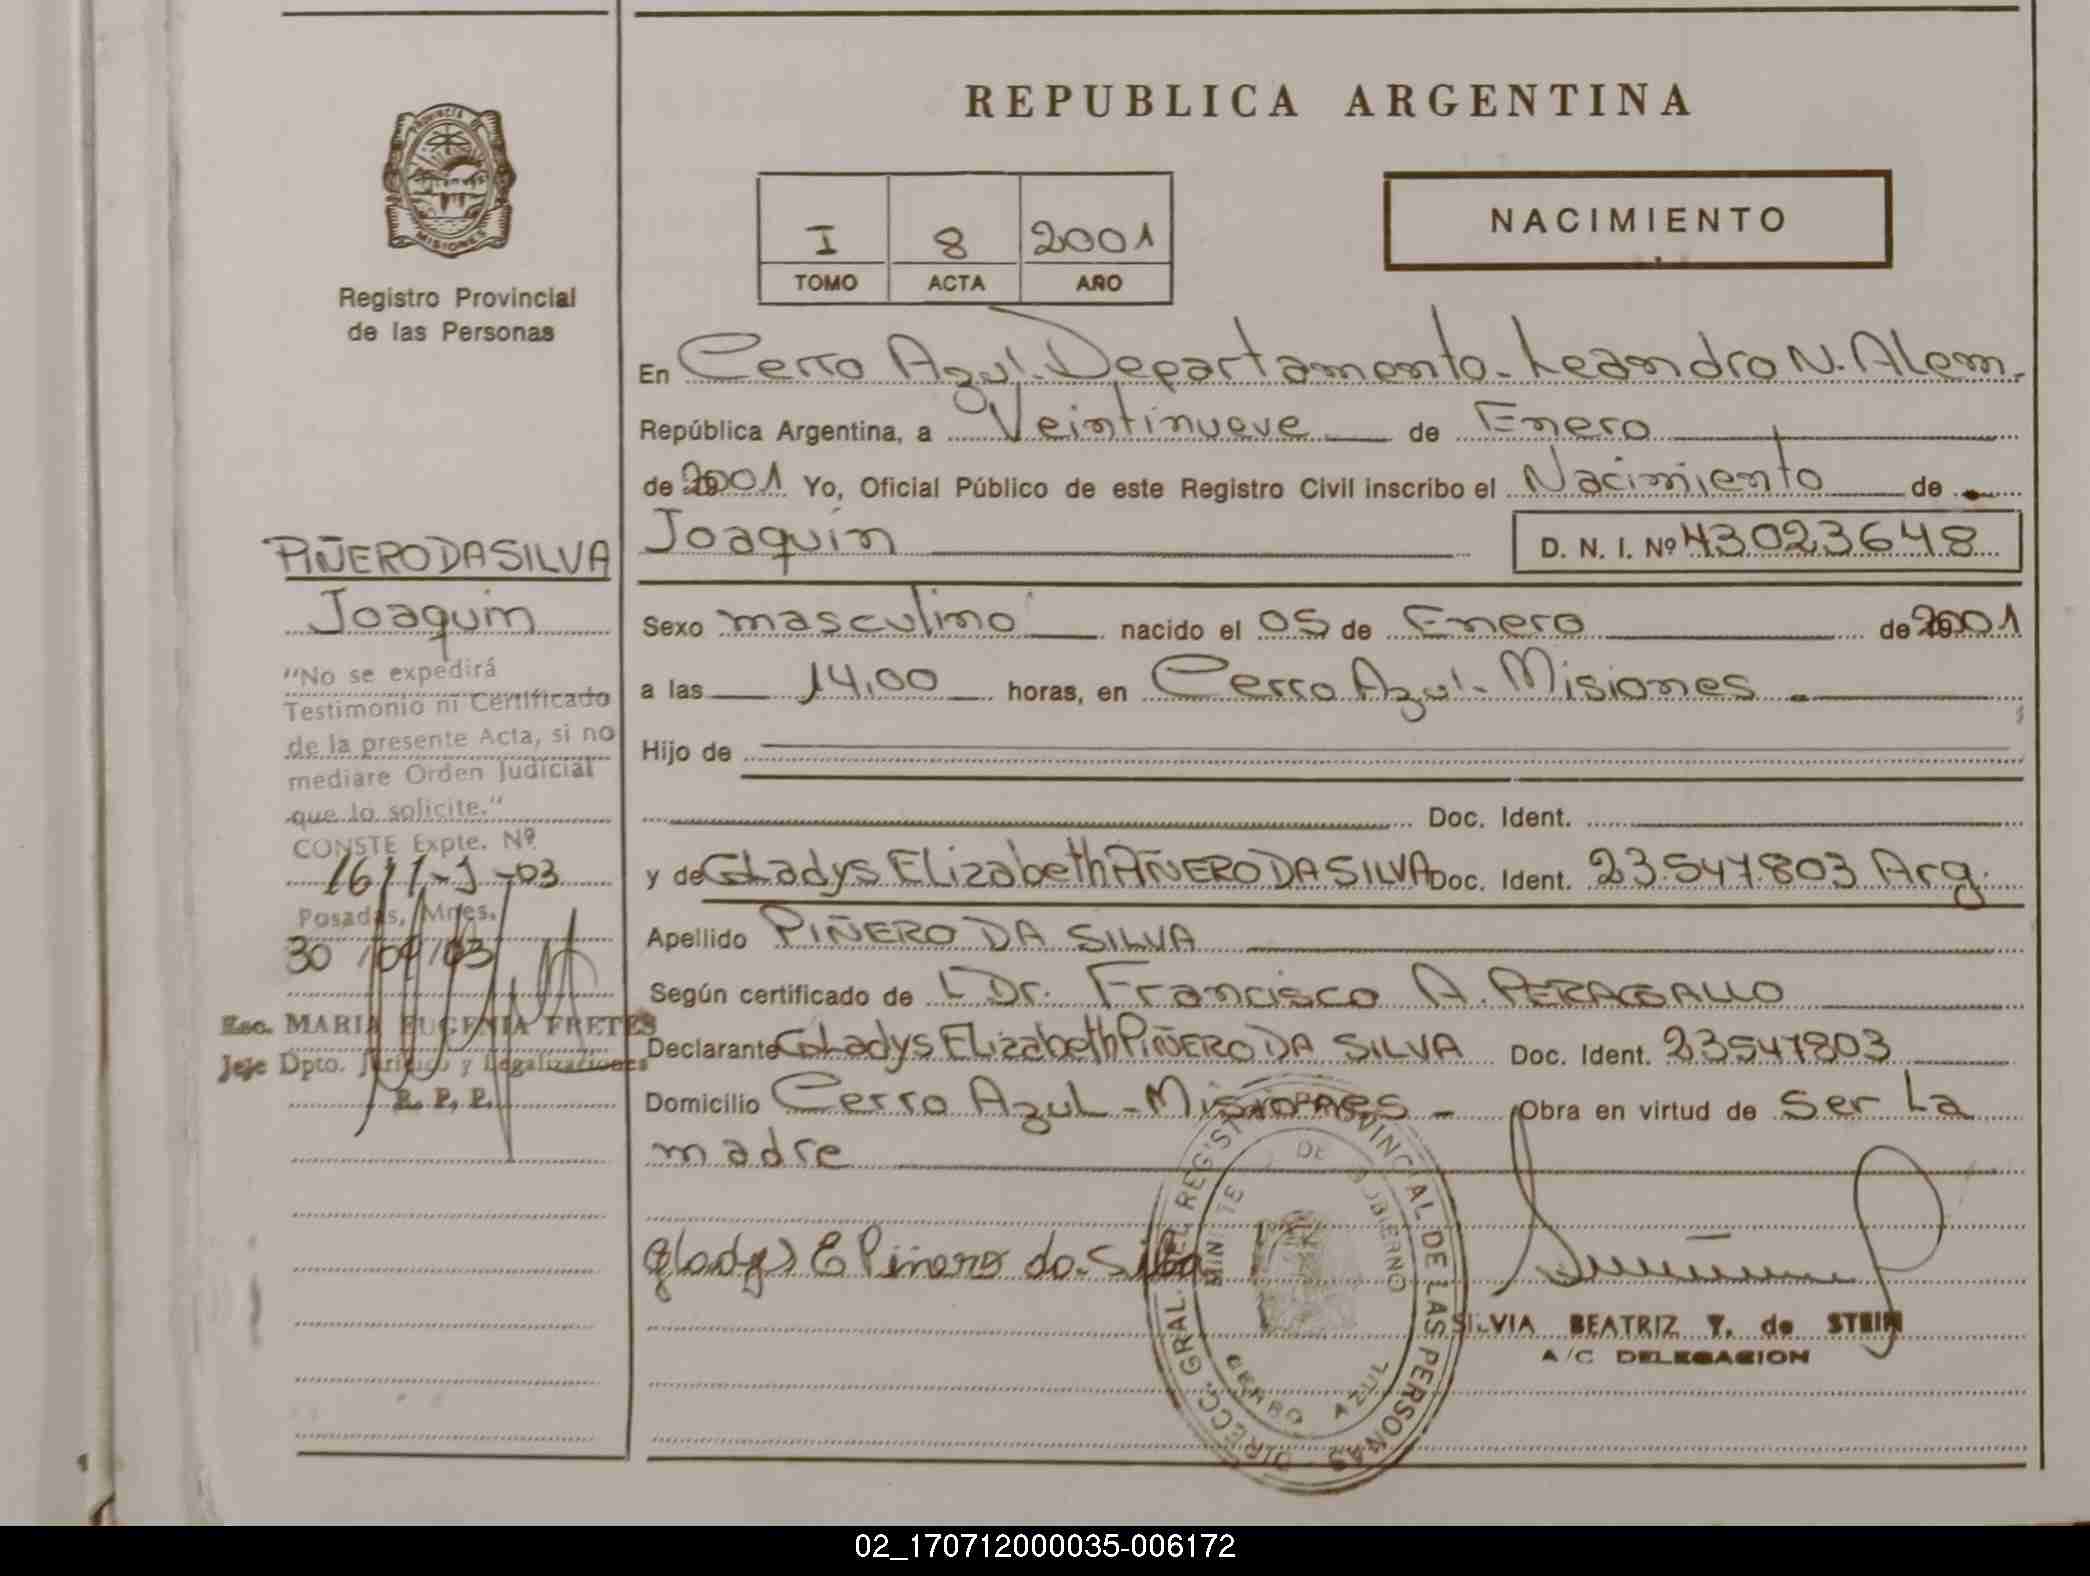 REPUBLICA ARGENTINA
PROVINCIA DE
MISIONES
Registro Provincial
de las Personas
I 8 2001
TOMO ACTA AÑO
NACIMIENTO
En Cerro Azul. Departamento. Leandro N. Alem.
República Argentina, a Veintinueve de Enero
de 2001 Yo, Oficial Público de este Registro Civil inscribo el Nacimiento de
Joaquin D. N. I. Nº 43023648
Sexo masculino nacido el 05 de Enero de 2001
a las 14,00 horas, en Cerro Azul - Misiones
Hijo de
Doc. Ident.
y de Gladys Elizabeth PIÑERO DA SILVA Doc. Ident. 23.547.803 Arg.
Apellido PIÑERO DA SILVA
Según certificado de Dr. Francisco A. PERAGALLO
Declarante Gladys Elizabeth PIÑERO DA SILVA Doc. Ident. 23547803
Domicilio Cerro Azul - Misiones - Obra en virtud de ser La
madre
Gladys E Piñero da Silva
DIRECC. GRAL. DEL REGISTRO PROVINCIAL DE LAS PERSONAS
DE GOBIERNO
CERRO AZUL
SILVIA BEATRIZ T. de STEIN
A/C DELEGACION
PIÑERO DA SILVA
Joaquin
"No se expedirá
Testimonio ni Certificado
de la presente Acta, si no
mediare Orden Judicial
que lo solicite."
CONSTE Expte. Nº
Posadas, Mnes.
30/09/03
Esc. MARIA EUGENIA FRETES
Jefe Dpto. Jurídico y Legalizaciones
R. P. P.
02_170712000035-006172